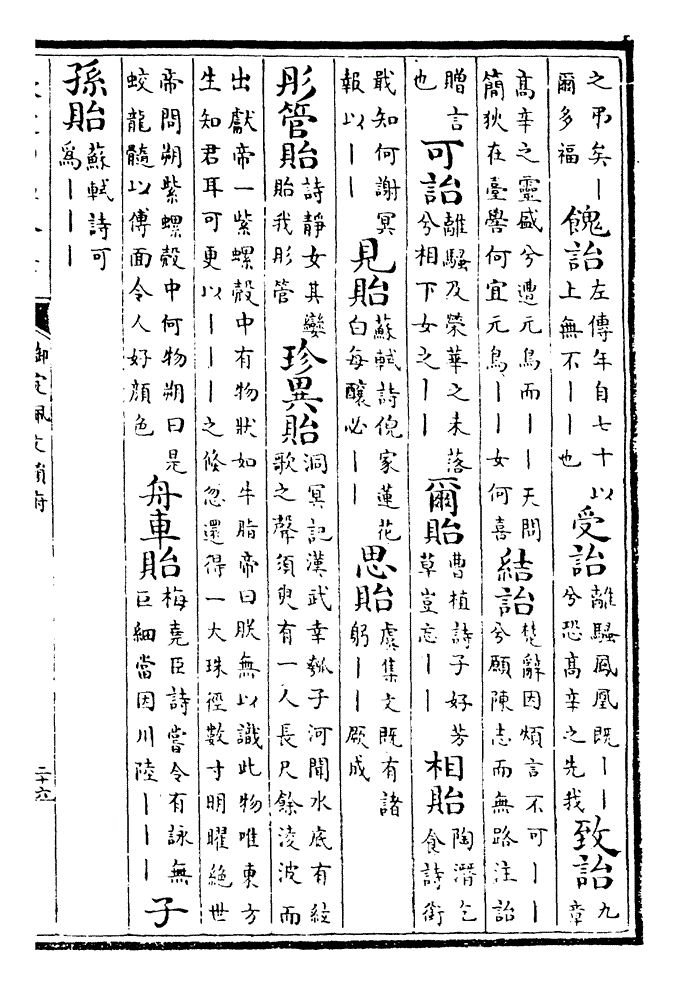 之弔矣丨爾多福 餽詒 左傳年自七十以上無不丨丨也 受詒 離騷鳳凰既丨丨兮恐髙辛之先我 致詒 九章
髙辛之靈盛兮遭元鳥而丨丨天問簡狄在臺嚳何宜元鳥丨丨女何喜 結詒 楚辭因煩言不可丨丨兮願陳志而無路注詒
贈言也 可詒 離騷及榮華之未落兮相下女之丨丨 爾貽 曹植詩子好芳草豈忘丨丨 相貽 陶潛乞食詩銜
戢知何謝冥報以丨丨 見貽 蘇軾詩倪家蓮花白每釀必丨丨 思貽 虞集文既有諸躬丨丨厥成
彤管貽 詩靜女其孌貽我彤管 珍異貽 洞冥記漢武幸瓠子河聞水底有絃歌之聲須臾有一人長尺餘淩波而
出獻帝一紫螺殼中有物狀如牛脂帝曰朕無以識此物唯東方生知君耳可更以丨丨丨之倐忽還得一大珠徑數寸明曜絶世
帝問朔紫螺殼中何物朔曰是蛟龍髓以傅面令人好顔色 舟車貽 梅堯臣詩嘗令有詠無巨細當因川陸丨丨丨 子
孫貽 蘇軾詩可爲丨丨丨
御定佩文韻府
二十六